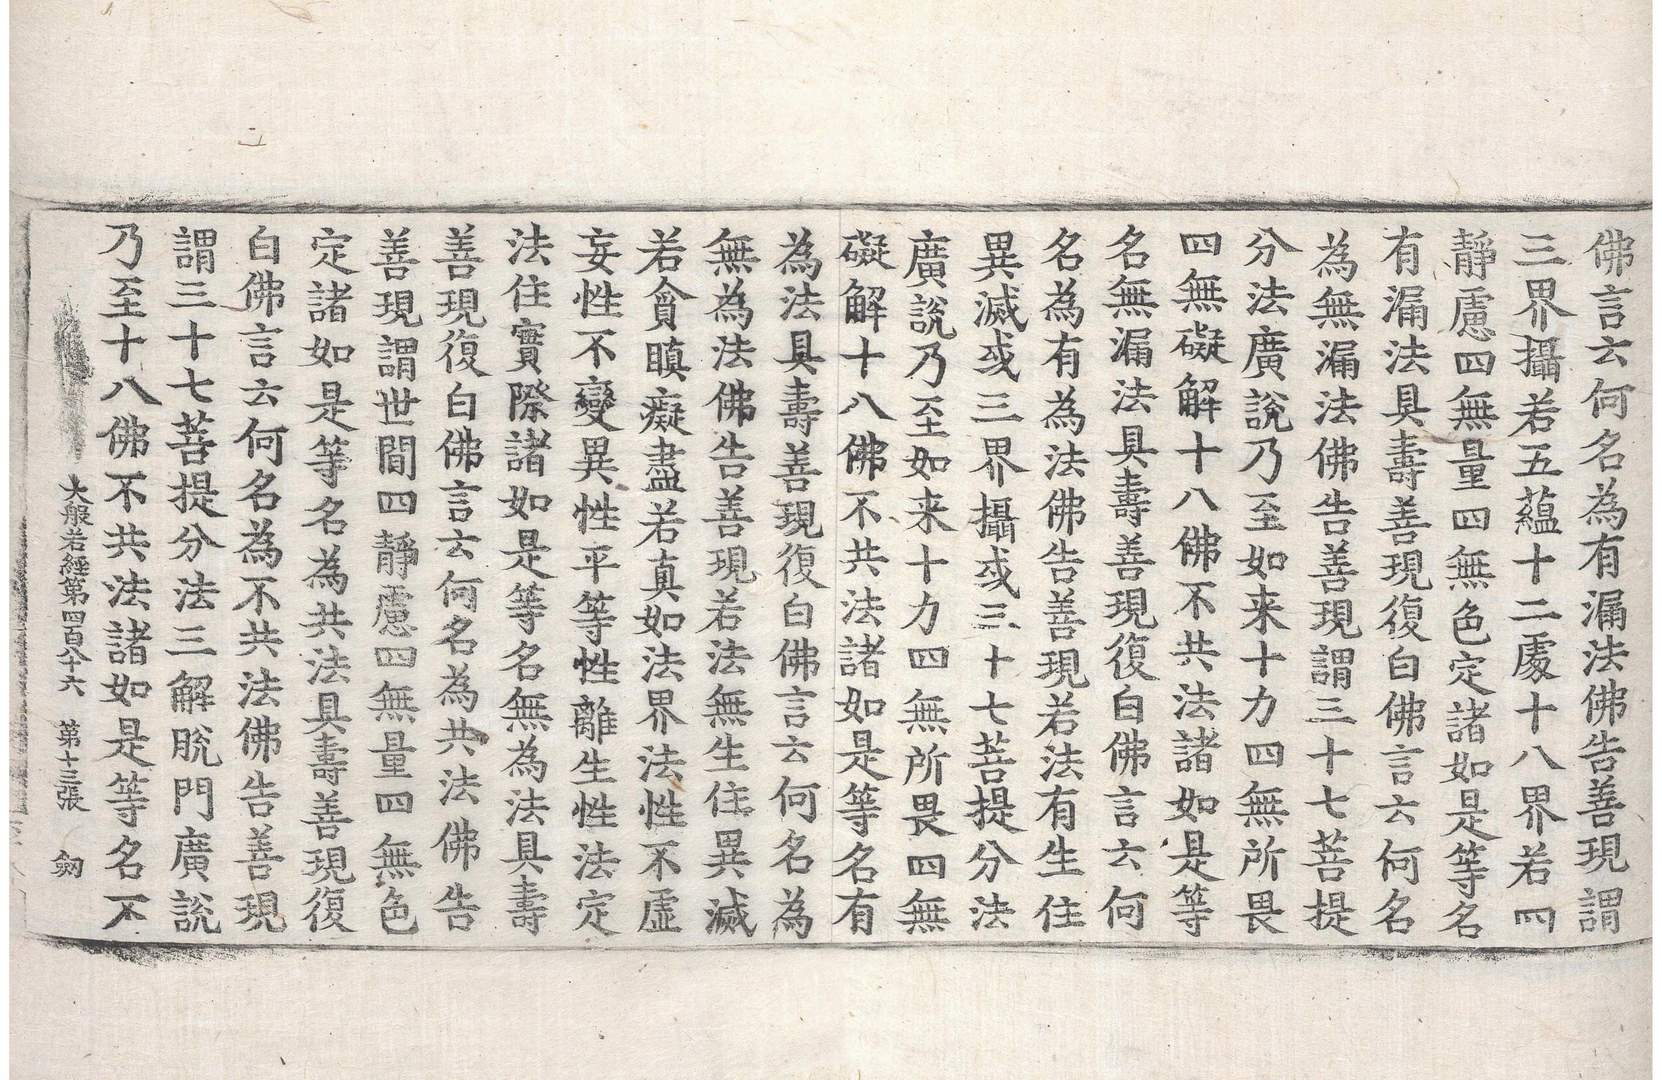 佛言云何名為有漏法佛告善現謂
三界攝若五蘊十二處十八界若四
靜慮四無量四無色定諸如是等名
有漏法具壽善現復白佛言云何名
為無漏法佛告善現謂三十七菩提
分法廣說乃至如来十力四無所畏
四無礙解十八佛不共法諸如是等
名無漏法具壽善現復白佛言云何
名為有為法佛告善現若法有生住
異滅或三界攝或三十七菩提分法
廣說乃至如来十力四無所畏四無
礙解十八佛不共法諸如是等名有
為法具壽善現復白佛言云何名為
無為法佛告善現若法無生住異滅
若貪瞋癡盡若真如法界法性不虛
妄性不變異性平等性離生性法定
法住實際諸如是等名無為法具壽
善現復白佛言云何名為共法佛告
善現謂世間四靜慮四無量四無色
定諸如是等名為共法具壽善現復
白佛言云何名為不共法佛告善現
謂三十七菩提分法三解脫門廣說
乃至十八佛不共法諸如是等名不
大般若經第四百八十六 第十三張 劒